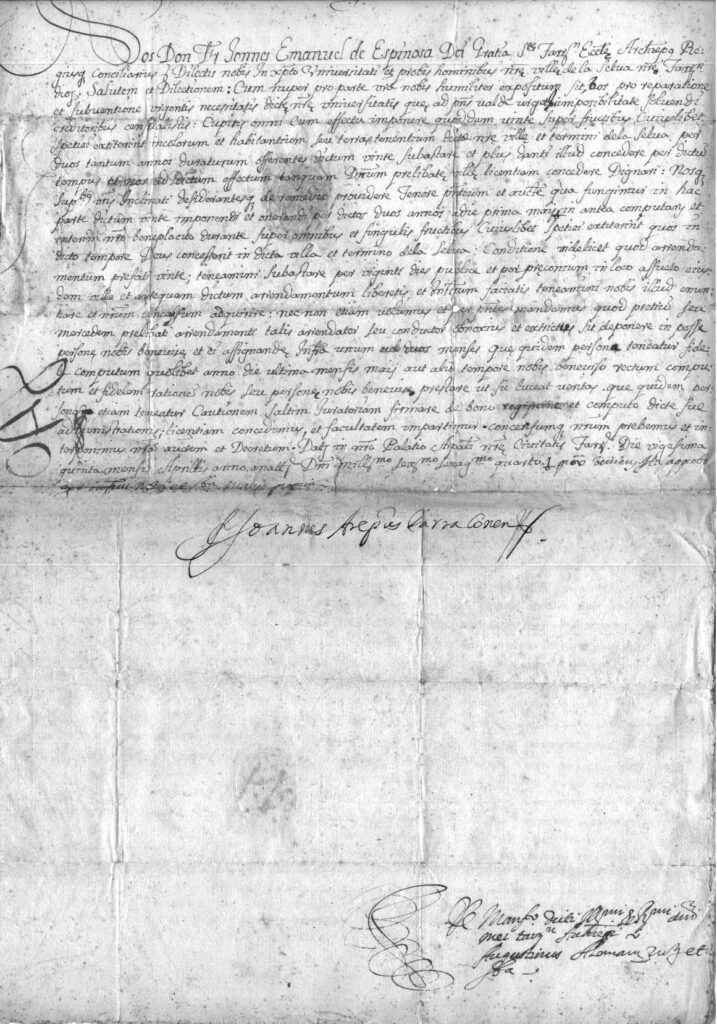 Nos Don Fr Ioannes Emanuel de Espinosa Dei gratia Stæ Tarrn Eccle Archiepus Re
giusq Conciliarius & Dilectis nobis In xpto Universitati et probis hominibus nre ville de la Selua nre Tarrn
Dios, Salutem et Dilectionem: Cum nuper pro parte vra nobis humiliter expositum sit, vos pro reparatione
et subventione urgentis necessitatis dicte nre Universitatis que ad pns valde urgetur impossibilitate solvendi
creditoribus censalistis: Cupitis omni cum effectu imponere quoddam vinte super fructibus cuiuslibet
speciei extiterint incolorum et habitantium seu terras tenentium dicte nre ville et termini de la Selua, per
duos tantum annos duraturum offerentes dictum vinte subastare et plus danti illud concedere per dictum
tempus et nos ad dictum effectum tanquam Dnum prelibate ville licentiam concedere Dignari: Nosq
supd onj Inclinati desiderantesq de remedio providere Tenore pntium et aucte qua fungimur in hac
parte dictum vinte imponendi et onerandi per dictos duos annos a die prima maij in antea computandos et
nro beneplacito durante, super omnibus et singulis fructibus cuiuslibet speciei extiterint quos in
dicto tempore Deus concesserit in dicta villa et termino de la Selua: Conditione videlicet quod arrenda
mentum prefati vinte, teneamini subastare per viginti dies publice et per preconem in loco assueto eius
dem ville et antequam dictum arrendamentum liberetis et Instrum faciatis teneamini nobis illud enun
tiare et nrum concessum adquirire: nec non etiam volumus et mandamus quod pretiu seu
mercedem prelibati arrendamenti talis arrendator seu conductor obnoxius et extrictus sit deponere in posse
persone nobis benevise et assignande Infra unum vel duos menses que quidem persona teneatur fide
computum quolibet anno die ultima mensis maij aut alio tempore nobis beneviso rectum compu
tum et fidelem rationē nobis seu persone nobis benevise prestare ut sic luceat veritas, que quidem per
sona etiam teneatur Cautionem saltim Iuratoriam firmare de bono regimine et computo dicte sue
administrationis: licentiam concedimus et facultatem impartimur concensumq nrum prebemus et in
terponimus nrā auctem et Decretum. Dat in nro Palatio Apali nre Civitatis Tarrn Die vigesima
quinta mensis Aprilis anno a natte Dni millmo sexmo sexagmo quarto.
Joannes Arepus Tarraconen
De Manto dicti Illmi & Rmi dni
mei Tarrn Archiepi
Augustinus et